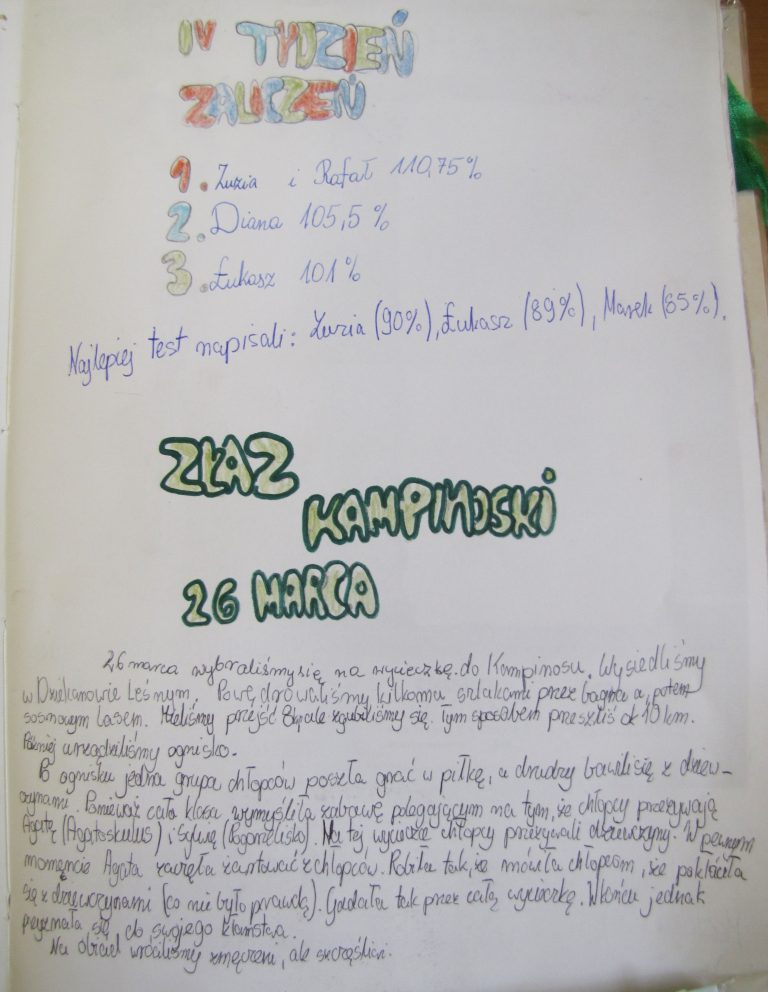 IV TYDZIEŃ
ZALICZEŃ
1. Zuzia i Rafał 110,75%
2. Diana 105,5%
3. Łukasz 101%
Najlepiej test napisali: Zuzia (90%), Łukasz (89%), Marek (85%).
ZŁAZ
KAMPINOSKI
26 MARCA
26 marca wybraliśmy się na wycieczkę do Kampinosu. Wysiedliśmy
w Dziekanowie Leśnym. Powędrowaliśmy kilkoma szlakami przez bagna a, potem
sosnowym lasem. Mieliśmy przejść 8 ale zgubiliśmy się. Tym sposobem przeszliś ok 10 km.
Później urządziliśmy ognisko.
Po ognisku jedna grupa chłopców poszła grać w piłkę, a drudzy bawili się z dziew-
czynami. Ponieważ cała klasa wymyśliła zabawę polegającym na tym, że chłopcy przezywają
Agatę (Agatoskulus) i Sylwię (Pogorzelisko). Na tej wycieczce chłopcy przezywali dziewczyny. W pewnym
momencie Agata zaczęła żartować z chłopców. Robiła tak, że mówiła chłopcom, że pokłóciła
się z dziewczynami (co nie było prawdą). Gadała tak przez całą wycieczkę. W końcu jednak
przyznała się do swojego kłamstwa.
Na obiad wróciliśmy zmęczeni, ale szczęśliwi.